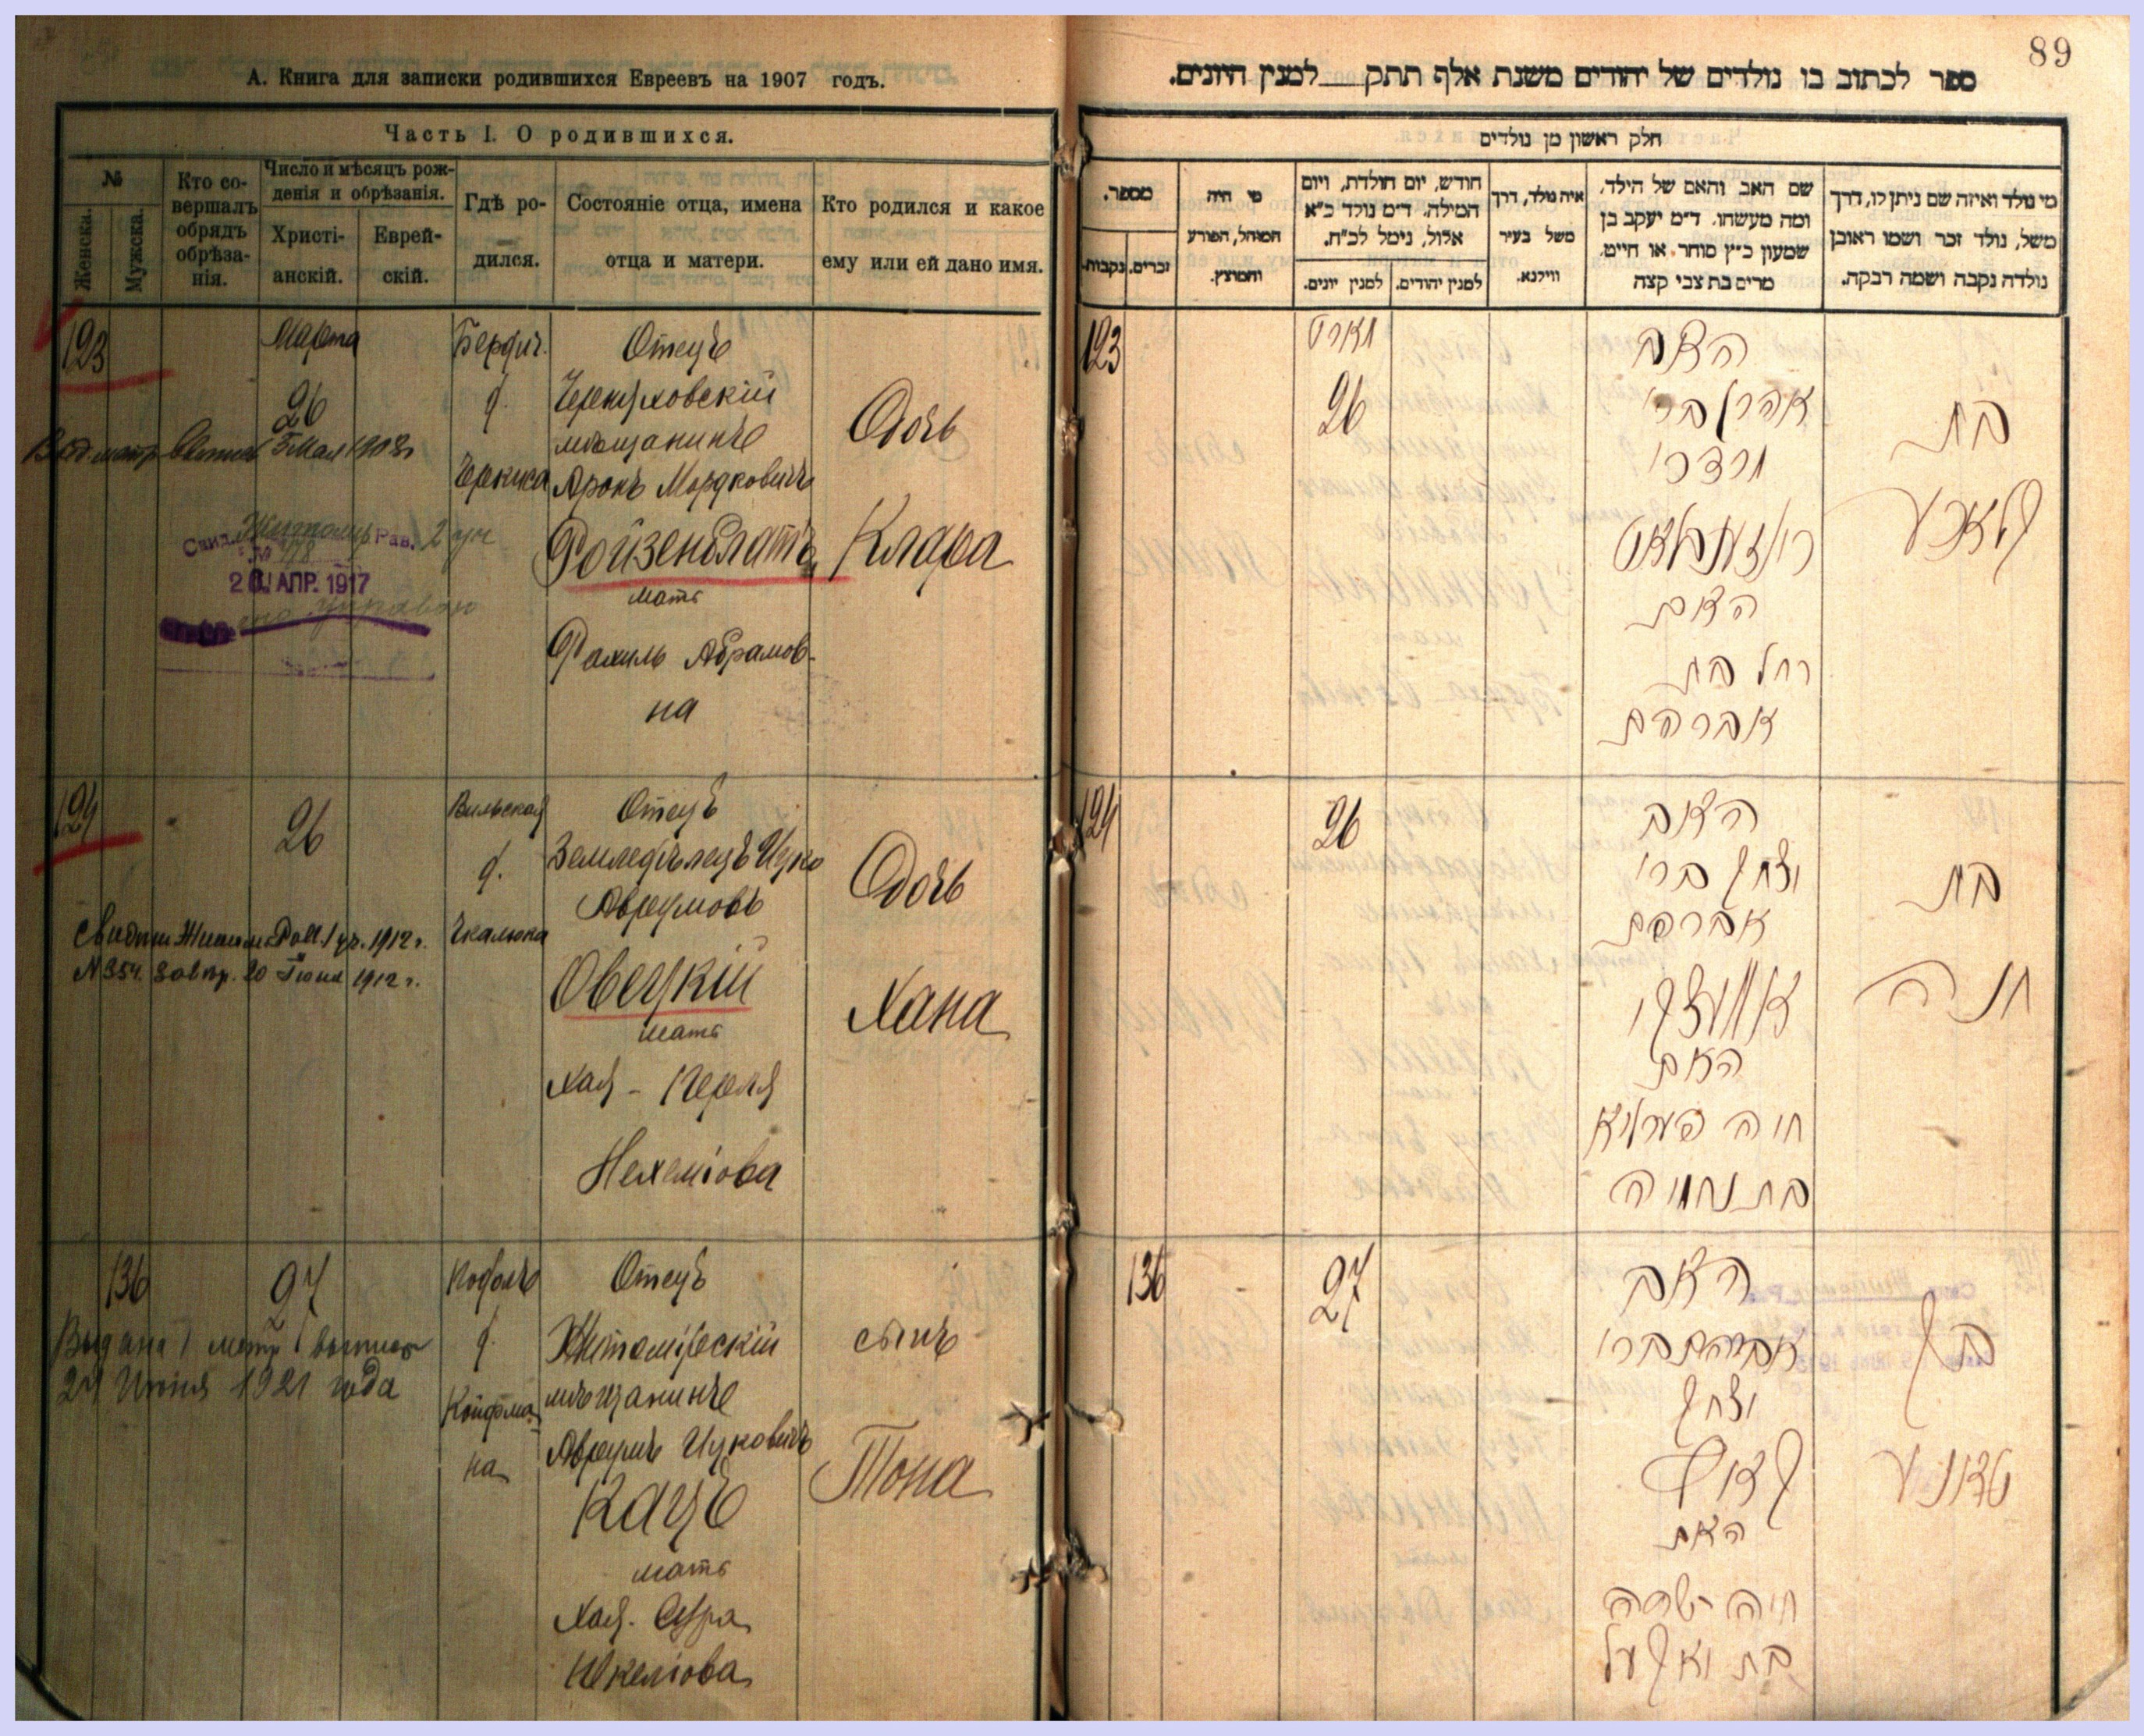 89
А. Книга для записки родившихся Евреевъ на 1907 годъ.
Часть I. О родившихся.
№
Женска.
Мужска.
Кто со-
вершалъ
обрядъ
обрѣза-
нія.
Число и мѣсяцъ рож-
денія и обрѣзанія.
Христі-
анскій.
Еврей-
скій.
Гдѣ ро-
дился.
Состояніе отца, имена
отца и матери.
Кто родился и какое
ему или ей дано имя.
123
Марта
26
Бердич.
д.
Отецъ
мѣщанинъ
Аронъ Мордковичъ
Ройзенблатъ
мать
Рахиль Абрамов-
на
Дочь
Клара
5 Мая 1908 г
Свид. Житомір Рав. 2 уч
№ 478
20 АПР. 1917
124
26
Вильская
д.
Отецъ
Земледѣлецъ Ицко
Аврумовъ
Овецкій
мать
Хая - Перля
Нехеміова
Дочь
Хана
1 уч. 1912 г.
N 354. 20 Іюня 1912 г.
136
27
д.
Койфма-
на
Отецъ
Житомірскій
мѣщанинъ
Аврумъ Ицковичъ
Кацъ
мать
Хая - Сура
сынъ
Тона
Выдана 1 метр
1921 года
ספר לכתוב בו נולדים של יהודים משנת אלף תתק__למנין היונים.
חלק ראשון מן נולדים
מספר.
נקבות.
זכרים.
מי היה
המוהל, הפורע
והמוצץ.
חודש, יום הולדת, ויום
המילה. ד״מ נולד כ״א
אלול, נימל לכ״ח.
למנין יונים.
למנין יהודים.
איה נולד, דרך
משל בעיר
ווילנא.
שם האב והאם של הילד,
ומה מעשהו. ד״מ יעקב בן
שמעון כ״ץ סוחר. או חייט.
מרים בת צבי קצה
מי נולד ואיזה שם ניתן לו, דרך
משל, נולד זכר ושמו ראובן
נולדה נקבה ושמה רבקה.
123
מארט
26
האב
אהרן בר׳
מרדכי
רויזענבלאט
האם
רחל בת
אברהם
בת
קלארע
124
26
האב
יצחק בר׳
אברהם
אוועצקי
האם
חיה פערליא
בת נחמיה
בת
חנה
136
27
האב
אברהם בר׳
יצחק
האם
חיה שרה
בת
טאנע